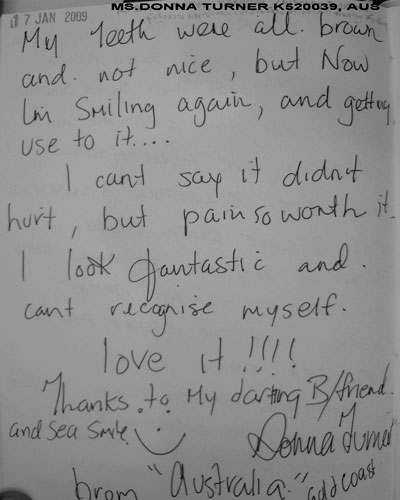 MS.DONNA TURNER K520039, AUS
17 JAN 2009
My Teeth were all. brown
and. not nice, but Now
Im Smiling again, and getting
use to it....
I cant say it didnt
hurt, but pain so worth it.
I look fantastic and.
cant recognise myself.
love it !!!!
Thanks. to. My darting B/friend.
and Sea Smile.
Donna Turner
from "Australia." gold coast